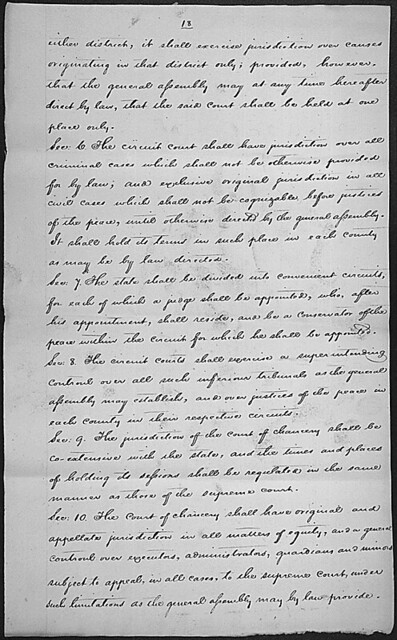 18
either district, it shall exercise jurisdiction over causes
originating in that district only; provided, however,
that the general assembly may at any time hereafter
direct by law, that the said court shall be held at one
place only.
Sec. 6 The circuit court shall have jurisdiction over all
criminal cases which shall not be otherwise provided
for by law; and exclusive original jurisdiction in all
civil cases which shall not be cognizable before justices
of the peace, until otherwise directd by the general assembly.
It shall hold its terms in such place in each county
as may be by law directed.
Sec. 7. The state shall be divided into convenient circuits,
for each of which a judge shall be appointed, who, after
his appointment, shall reside, and be a conservator of the
peace within the circuit for which he shall be appointed.
Sec. 8. The circuit courts shall exercise a superintending
control over all such inferiour tribunals as the general
assembly may establish, and over justices of the peace in
each county in their respective circuits.
Sec. 9. The jurisdiction of the court of chancery shall be
co-extensive with the state, and the times and places
of holding its sessions shall be regulated in the same
manner as those of the supreme court.
Sec. 10. The Court of chancery shall have original and
appellate jurisdiction in all matters of equity, and a general
controul over executors, administrators, guardians and minors
subject to appeal, in all cases, to the supreme court, under
such limitations as the general assembly may by law provide.